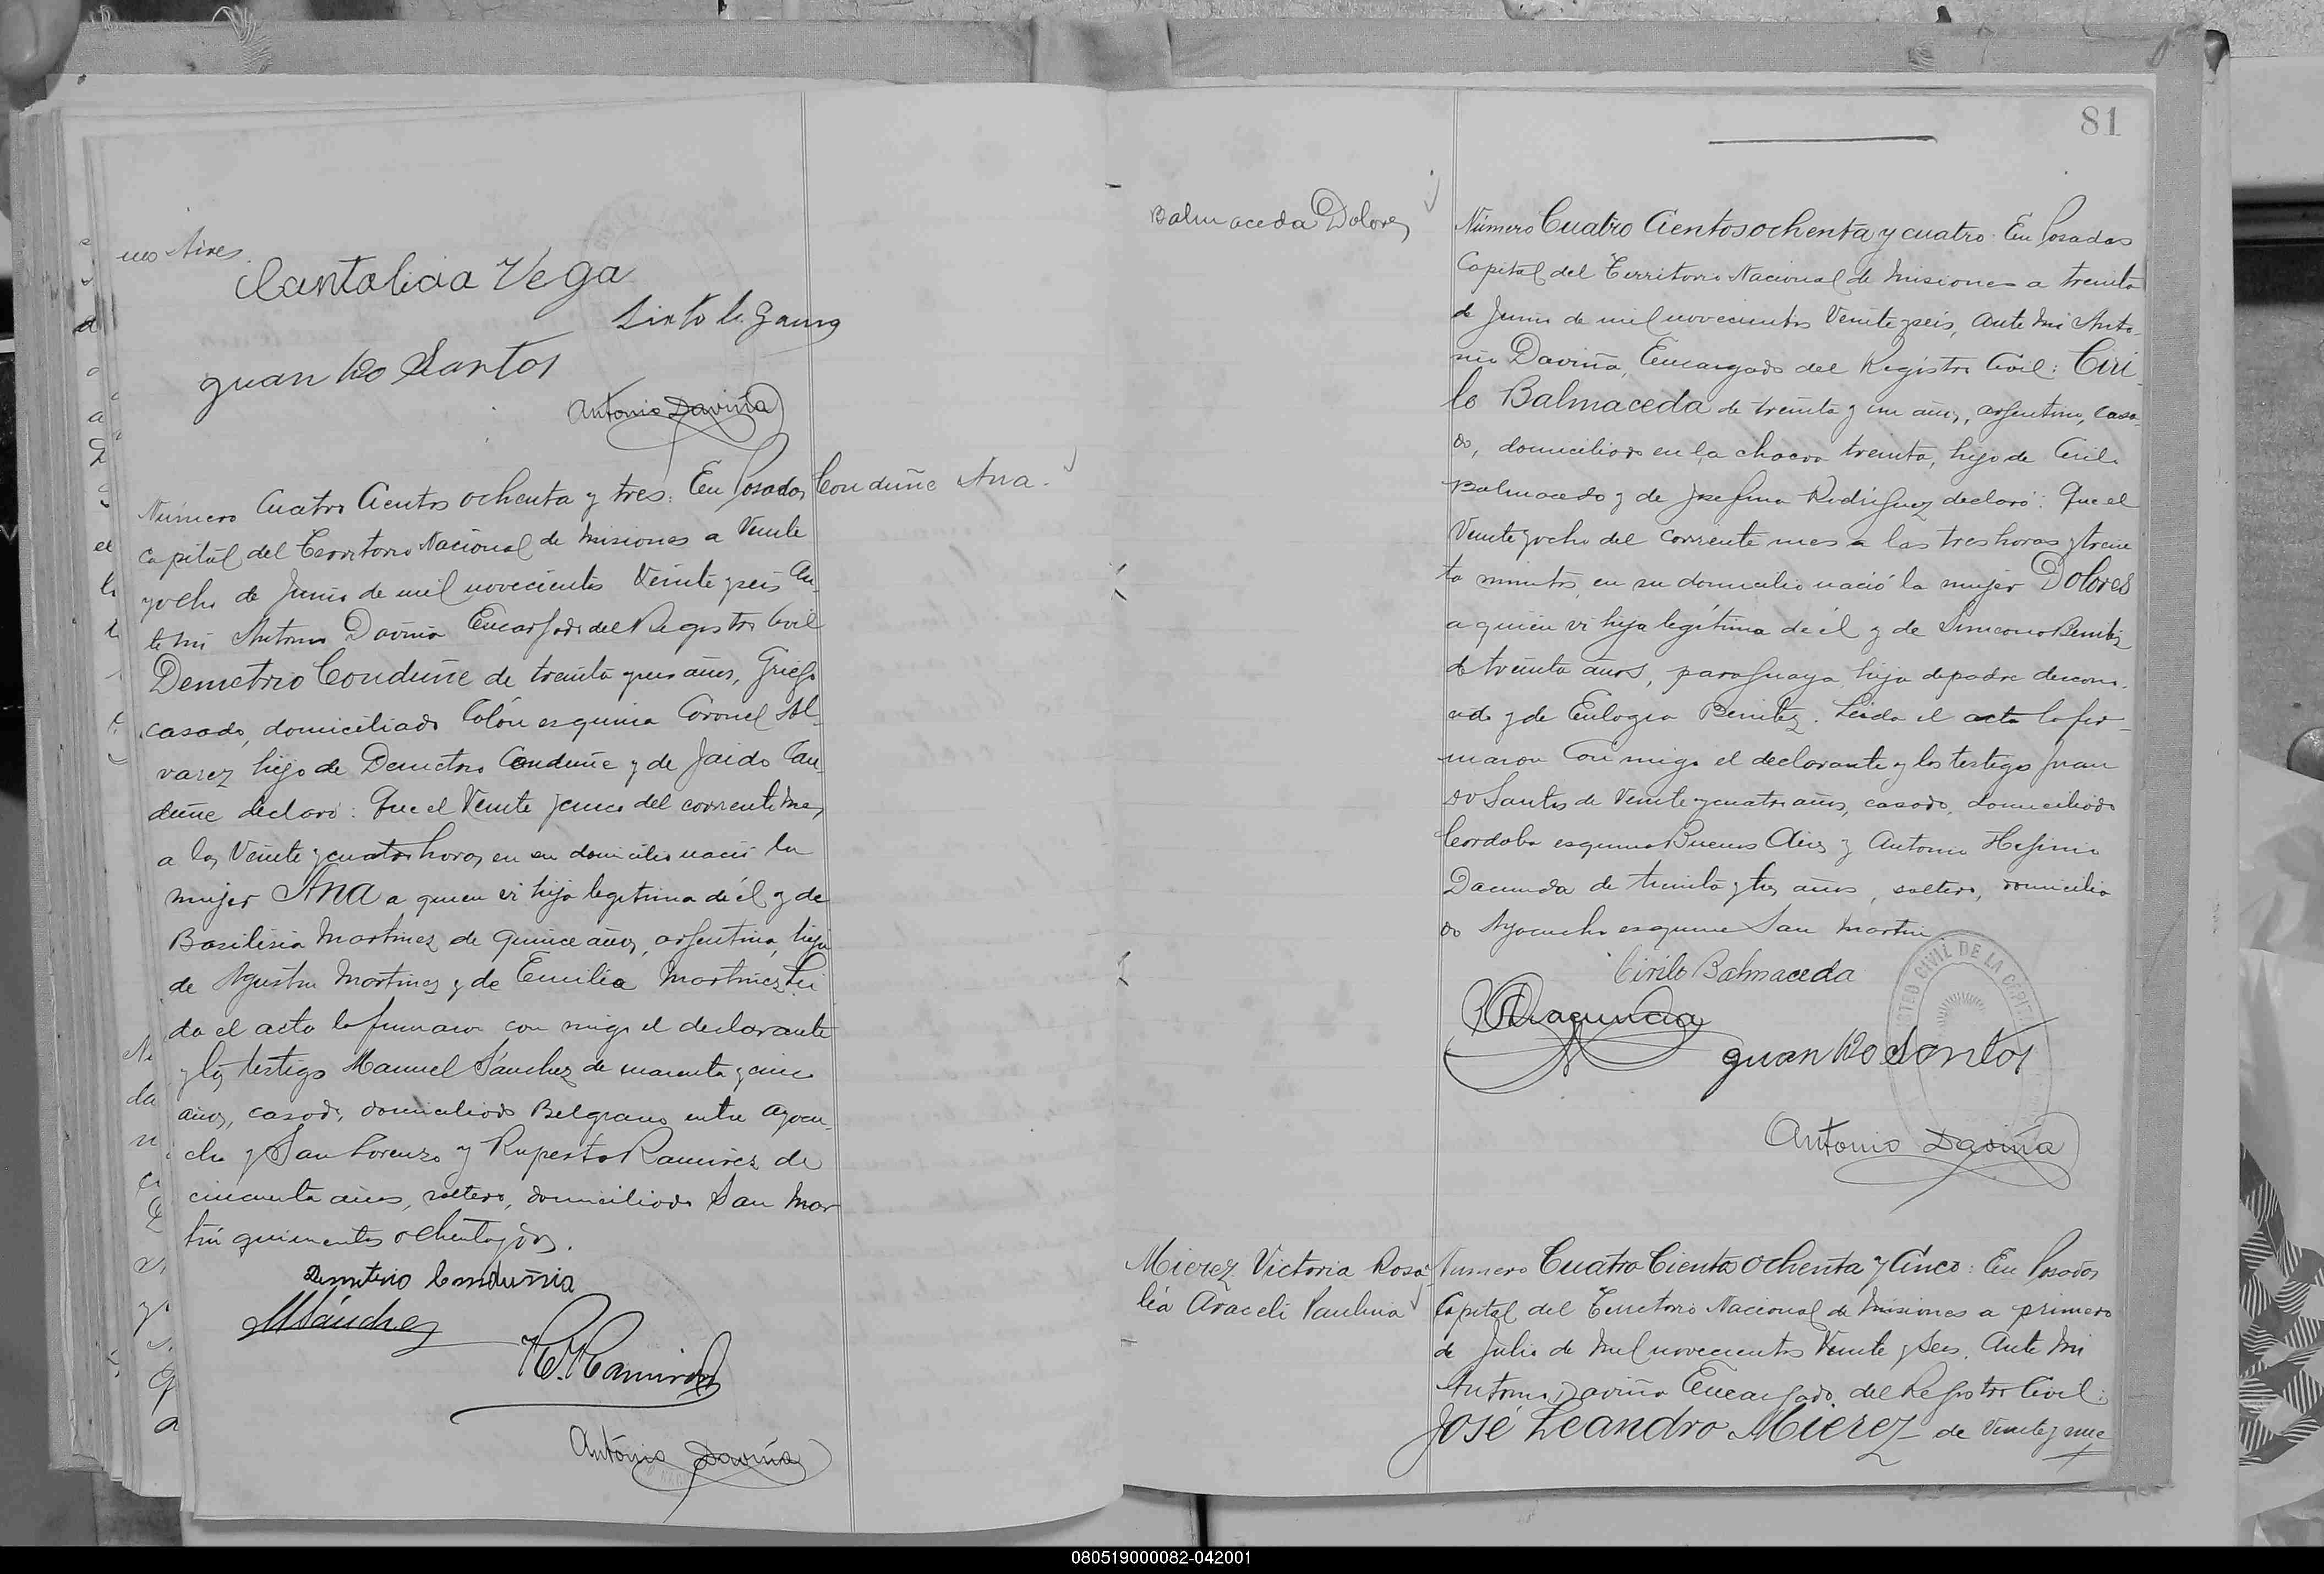 nos Aires.
Cantalicia Vega
Sixto L. Gauna
Juan do Santos
Antonio Daviña
Número Cuatro Cientos ochenta y tres: En Posadas
Conduñe Ana.
Capital del Territorio Nacional de Misiones a Veinte
y ocho de Junio de mil novecientos Veinte y seis An-
te mi Antonio Daviña Encargado del Registro Civil
Demetrio Conduñe de treinta y un años, Griego
casado, domiciliado Colón esquina Coronel Al-
varez hijo de Demetrio Conduñe y de Jaido Con
duñe declaró: Que el Veinte y cinco del corriente mes,
a las Veinte y cuatro horas, en su domicilio nació la
mujer Ana a quien vi hija legítima de él y de
Basilisia Martinez de quince años, argentina, hija
de Agustin Martinez y de Emilia Martinez. Lei
da el acta la firmaron con migo el declarante
y los testigo Manuel Sánchez de cuarenta y cinco
años, casado, domiciliado Belgrano entre Ayacu-
cho y San Lorenzo y Ruperto Ramirez de
cincuenta años, soltero, domiciliado San Mar
tin quinientos ochenta y dos.
Demetrio Conduñia
M Sánchez
R. Ramirez
Antonio Daviña
81
Balmaceda Dolores
Número Cuatro Cientos ochenta y cuatro: En Posadas
Capital del Territorio Nacional de Misiones a treinta
de Junio de mil novecientos Veinte y seis, Ante mi Anto-
nio Daviña, Encargado del Registro Civil: Ciri-
lo Balmaceda de treinta y un años, argentino, casa-
do, domiciliado en la chacra treinta, hijo de Cirilo
Balmaceda y de Josefina Rodriguez declaró: Que el
Veinte y ocho del corriente mes a las tres horas y trein
ta minutos, en su domicilio nació la mujer Dolores
a quien vi hija legítima de él y de Simeona Benitez
de treinta años, paraguaya, hija de padre descono-
cido y de Eulogia Benitez. Leida el acta la fir-
maron con migo el declarante y los testigo Juan
do Santos de Veinte y cuatro años, casado, domiciliado
Cordoba esquina Buenos Aires y Antonio Higinio
Dacunda de treinta y tres años, soltero, domicilia
do Ayacucho esquina San Martin
Cirilo Balmaceda
Dacunda
Juan do Santos
Antonio Daviña
Mierez Victoria Rosa
lia Araceli Paulina
Numero Cuatro Cientos Ochenta y Cinco: En Posadas
Capital del Territorio Nacional de Misiones a primero
de Julio de Mil novecientos Veinte y Seis. Ante Mi
Antonio Daviña Encargado del Registro Civil:
José Leandro Mierez de Veinte y nue
080519000082-042001